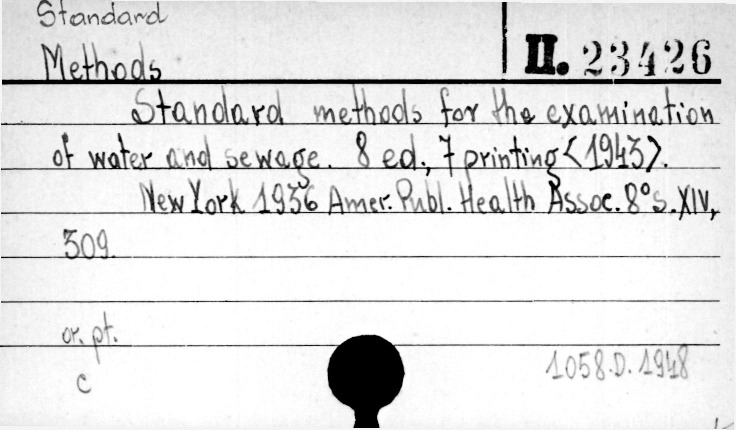 Standard
Methods
II. 23426
Standard methods for the examination
of water and sewage. 8 ed., 7 printing <1943>.
New York 1936 Amer. Publ. Health Assoc. 8° s. XIV,
309.
or. pt.
c
1058.D.1948